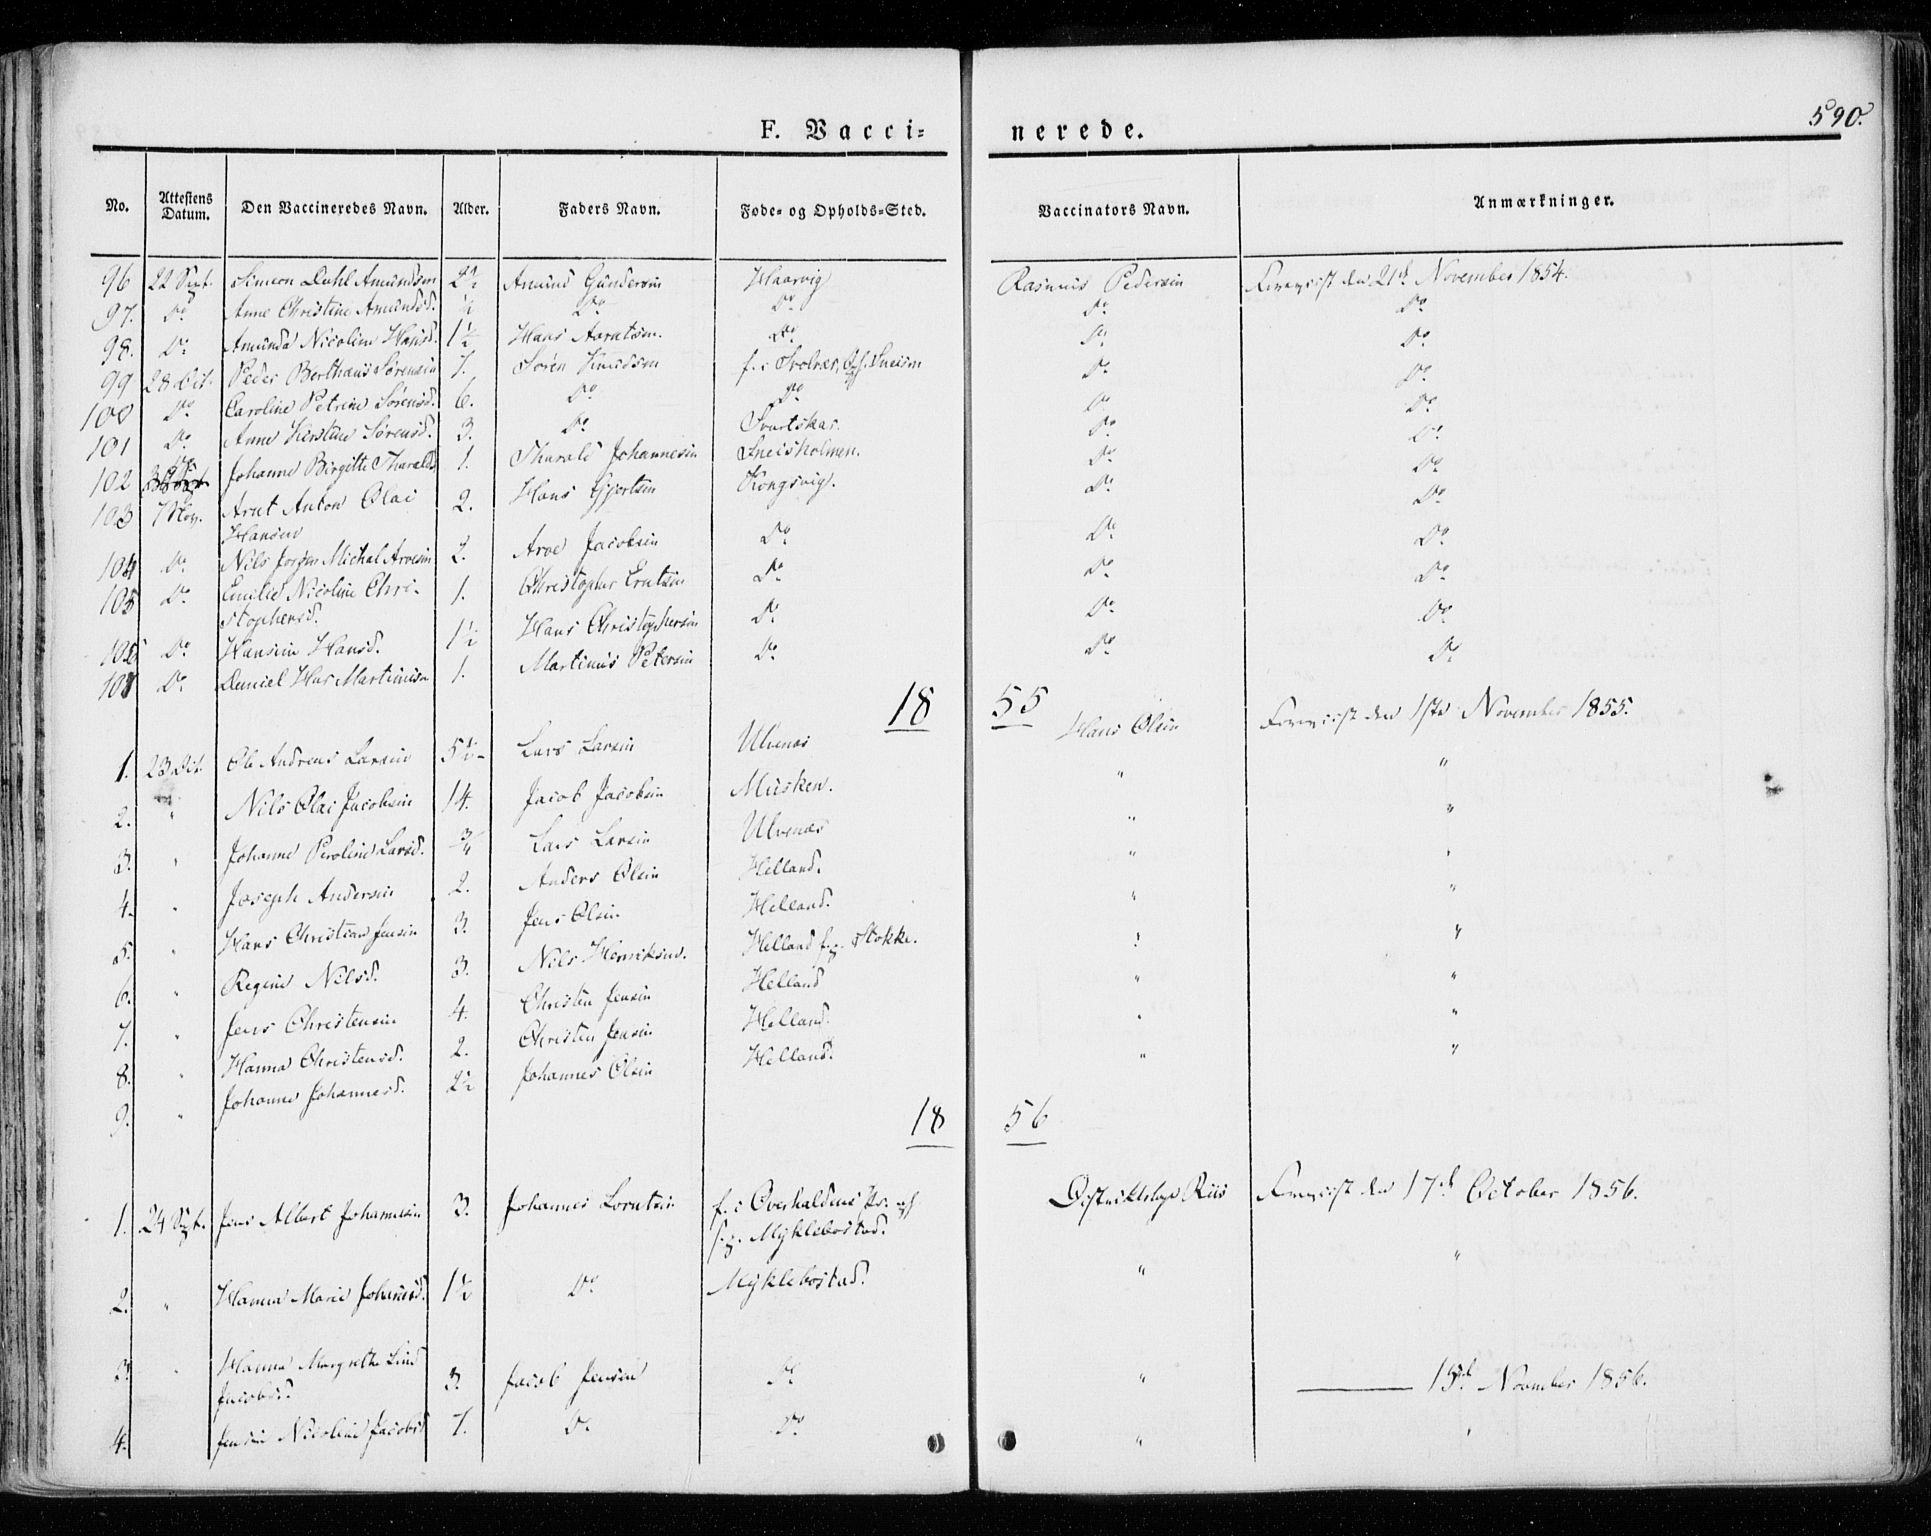 590.
F. Vacci= nerede.
No. Attestens Datum. Den Vaccineredes Navn. Alder. Faders Navn. Føde- og Opholds-Sted. Vaccinators Navn. Anmærkninger.
96 22 Sept. Simeon Dahl Amundsen 2½ Amund Gundersen Haarvig Rasmus Pedersen Foreviist den 21de November 1854.
97. Do Anne Christine Amundsd. ½ Do Do Do Do
98. Do Amunda Nicoline Hansd. 1½ Hans Do Do Do
99 28 Oct. Peder Berthæus Sørensen 7. Søren Knudsen f. i Svolvær, Do Do
100 Do Caroline Petrine Sørensd. 6. Do Do Do Do
101 Do Anne Kerstine Sørensd. 3. Do Svartskar. Do Do
102 Do Johanne Birgitte Tharalds 1. Tharald Johannesen Sneisholmen. Do Do
103 7 Nov. Arnt Anton Olai 2. Hans Gjertsen Kongsvig. Do Do
Hansen
104 Do Nils Jørgen Michal Aroesen 2. Aroe Jacobsen Do Do Do
105 Do Emilie Nicoline Chri- 1. Christopher Do Do Do
stophersd.
106 Do Hansine Hansd. 1½ Hans Christophersen Do Do Do
107 Do Daniel Martinusen 1. Martinus Petersen Do Do Do
18 55
1. 23 Oct. Ole Andreas Larsen 5½ Lars Larsen Ulvenæs Hans Olsen Foreviist den 1ste November 1855.
2. " Nils Olai Jacobsen 14. Jacob Jacobsen Musken. " "
3. " Johanne Peroline Larsd. ¾ Lars Larsen Ulvenæs " "
4. " Joseph Andersen 2. Anders Olsen Helland. " "
5. " Hans Christian Jensen 3. Jens Olsen Helland. " "
6. " Regine Nilsd. 3. Nils Henriksen. Helland f. p. Stokke. " "
7. " Jens Christensen 4. Christen Jensen Helland " "
8. " Hanna Christensd. 2. Christen Jensen Helland. " "
9. " Johanne Johannesd. 2½ Johannes Olsen Helland. " "
18 56
1. 24 Sept. Jens Albert Johannesen 3. Johannes Lorntsen f. i Overhaldens Pr. opf. Districtslæge Riis Foreviist den 17de October 1856.
p. Myklebostad.
2. " Hanna Marie Johannesd. 1½ Do Myklebostad. " "
3. " Hanna Margrethe Lind 3. Jacob Jensen Do " 15de November 1856.
Jacobsd.
4. Jensine Nicoline Jacobsd 7. Do Do " "